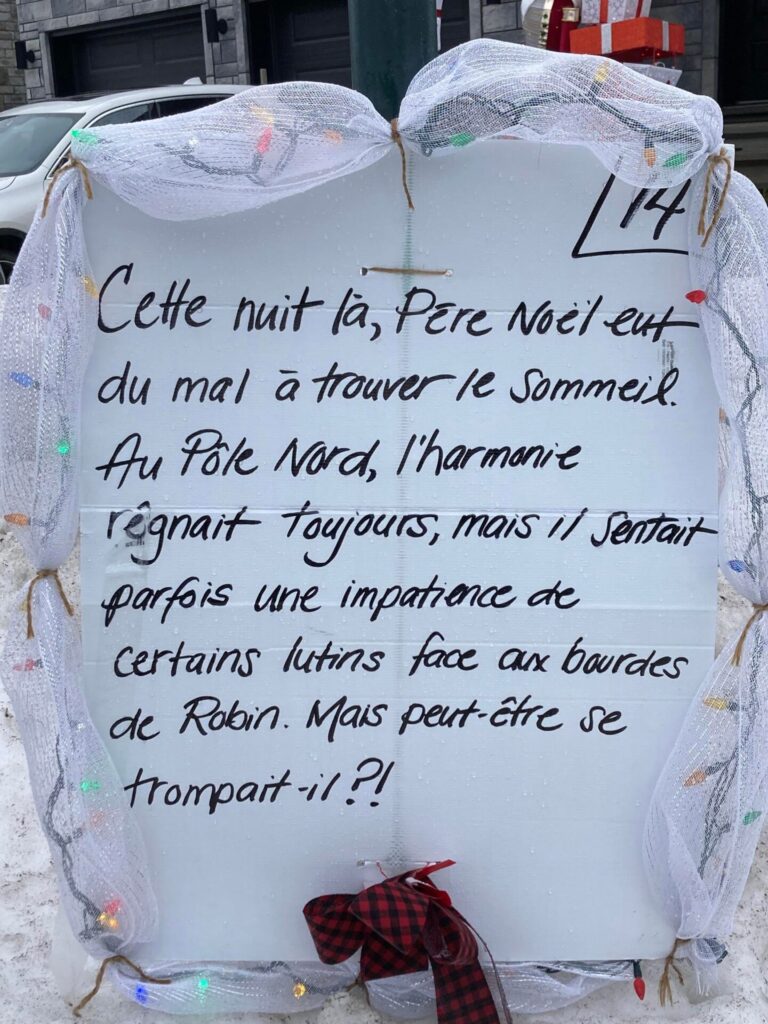 14
Cette nuit là, Père Noël eut
du mal à trouver le sommeil.
Au Pôle Nord, l'harmonie
règnait toujours, mais il sentait
parfois une impatience de
certains lutins face aux bourdes
de Robin. Mais peut-être se
trompait-il?!